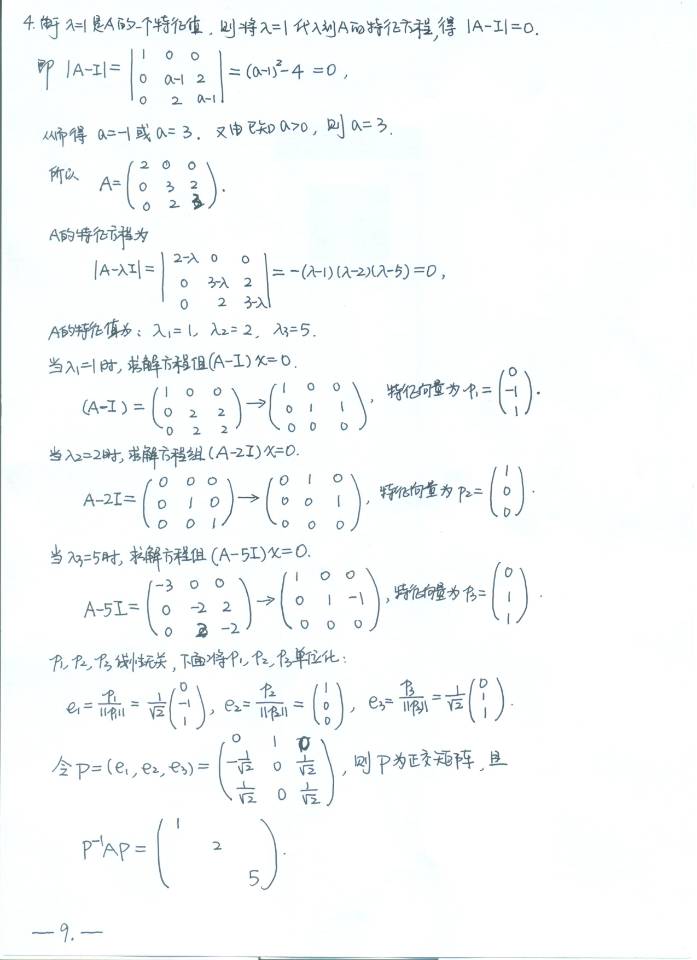 4. 由于 λ=1 是A的一个特征值, 则将 λ=1 代入到A的特征方程, 得 |A-I|=0.
即 |A-I| = | 1 0 0 ; 0 a-1 2 ; 0 2 a-1 | = (a-1)²-4 = 0,
从而得 a=-1 或 a=3. 又由已知 a>0, 则 a=3.
所以 A = ( 2 0 0 ; 0 3 2 ; 0 2 3 ).
A的特征方程为
|A-λI| = | 2-λ 0 0 ; 0 3-λ 2 ; 0 2 3-λ | = -(λ-1)(λ-2)(λ-5) = 0,
A的特征值为: λ₁=1, λ₂=2, λ₃=5.
当λ₁=1时, 求解方程组(A-I)x=0.
(A-I) = ( 1 0 0 ; 0 2 2 ; 0 2 2 ) → ( 1 0 0 ; 0 1 1 ; 0 0 0 ), 特征向量为 p₁ = ( 0 ; -1 ; 1 ).
当λ₂=2时, 求解方程组(A-2I)x=0.
A-2I = ( 0 0 0 ; 0 1 0 ; 0 0 1 ) → ( 0 1 0 ; 0 0 1 ; 0 0 0 ), 特征向量为 p₂ = ( 1 ; 0 ; 0 ).
当λ₃=5时, 求解方程组(A-5I)x=0.
A-5I = ( -3 0 0 ; 0 -2 2 ; 0 2 -2 ) → ( 1 0 0 ; 0 1 -1 ; 0 0 0 ), 特征向量为 p₃ = ( 0 ; 1 ; 1 ).
p₁, p₂, p₃线性无关, 下面将p₁, p₂, p₃单位化:
e₁ = p₁/||p₁|| = 1/√2 ( 0 ; -1 ; 1 ), e₂ = p₂/||p₂|| = ( 1 ; 0 ; 0 ), e₃ = p₃/||p₃|| = 1/√2 ( 0 ; 1 ; 1 ).
令 P = (e₁, e₂, e₃) = ( 0 1 0 ; -1/√2 0 1/√2 ; 1/√2 0 1/√2 ), 则P为正交矩阵, 且
P⁻¹AP = ( 1 ; 2 ; 5 ).
— 9. —